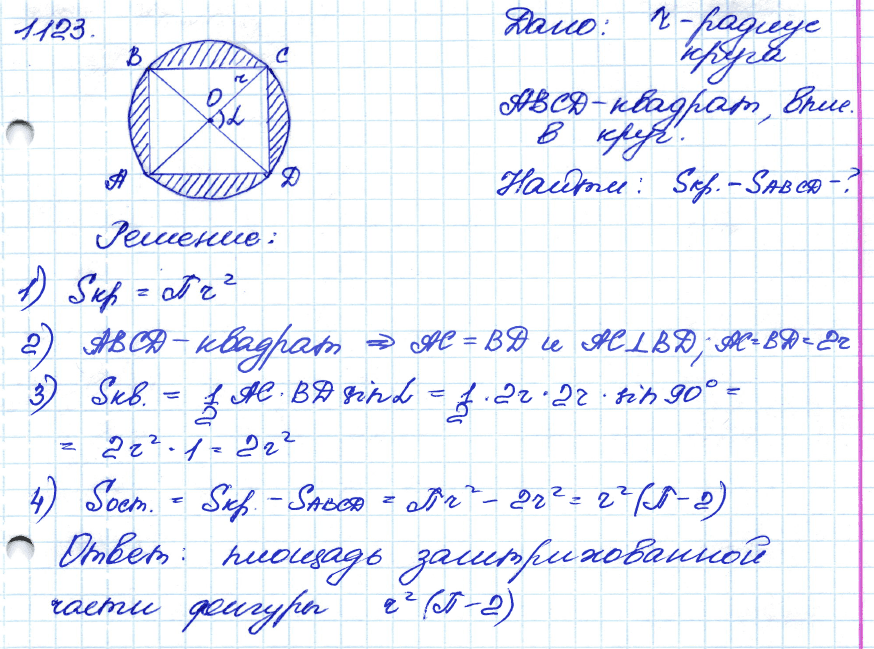 1123.
B C
r
O
α
A D
Дано: r - радиус
круга
ABCD - квадрат, впис.
в круг.
Найти: Sкр. - SABCD - ?
Решение:
1) Sкр = πr²
2) ABCD - квадрат ⇒ AC = BD и AC⊥BD; AC=BD=2r
3) Sкв. = 1/2 AC · BD sin α = 1/2 · 2r · 2r · sin 90° =
= 2r² · 1 = 2r²
4) Sост. = Sкр. - SABCD = πr² - 2r² = r²(π-2)
Ответ: площадь заштрихованной
части фигуры r²(π-2)